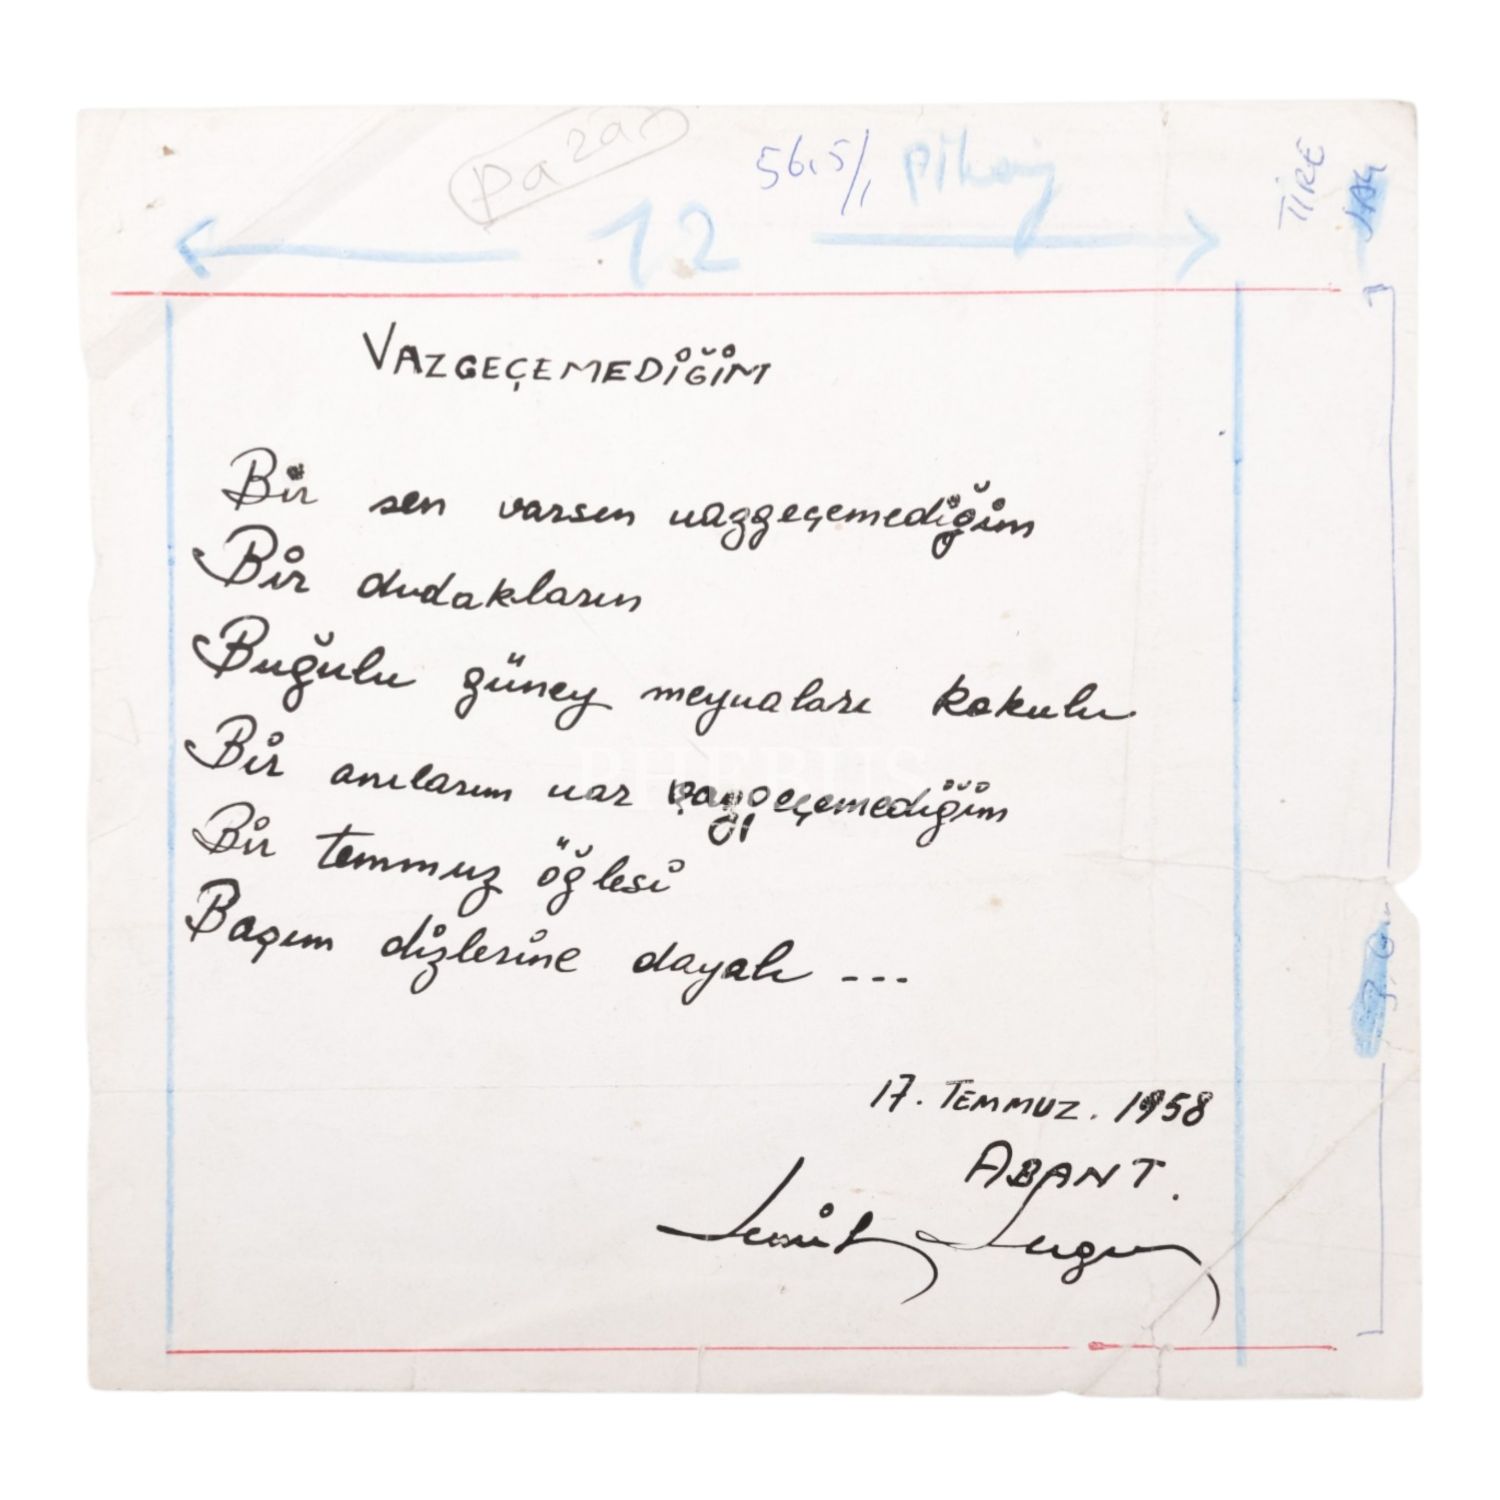 Pazar
56,5/1 pikaj
12
TİRE
VAZGEÇEMEDİĞİM
Bir sen varsın vazgeçemediğim
Bir dudakların
Buğulu güney meyvaları kokulu
Bir anılarım var vazgeçemediğim
Bir temmuz öğlesi
Başım dizlerine dayalı ...
17. TEMMUZ. 1958
ABANT.
PHEBUS